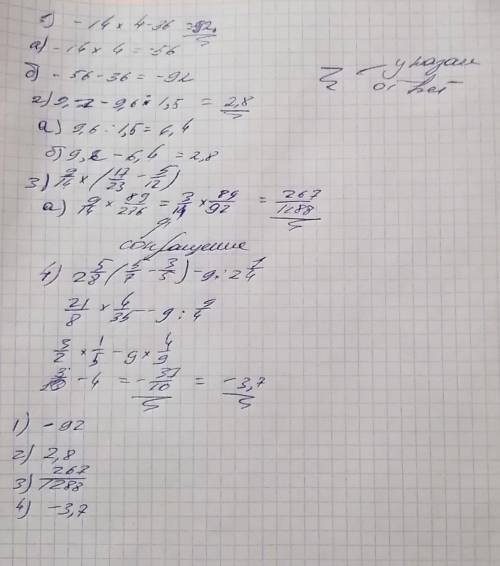 1) -14 × 4-36 = -92.
а) -14 × 4 = -56
б) -56-36 = -92
2) 9,2 - 9,6 : 1,5 = 2,8
а) 9,6 : 1,5 = 6,4
б) 9,2 - 6,4 = 2,8
указал ответ
3) 9/14 × (17/23 - 5/12)
а) 9/14 × 89/276 = 3/14 × 89/92 = 267/1288
сокращение
4) 2 5/8 (5/7 - 3/5) - 9 : 2 1/4
21/8 × 4/35 - 9 : 9/4
3/2 × 1/5 - 9 × 4/9
3/10 - 4 = -37/10 = -3,7
1) -92
2) 2,8
3) 267/1288
4) -3,7